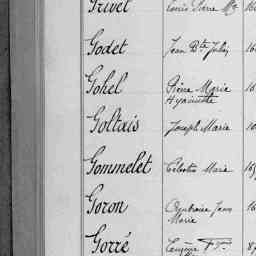 Privet Louis Pierre Mie
Godet Jean Bte Julien
Gohel Pierre Marie
Hyacinthe
Goltais Joseph Marie
Gommelet Célestin Marie
Goron Ambroise Jean
Marie
Gorré Eugène